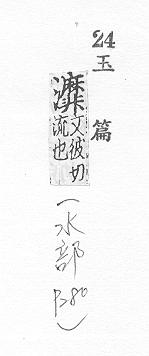 24
玉篇
灖文彼切
流也
(水部 P.80)